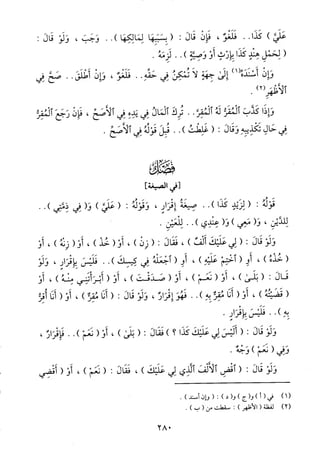 عَلَيَّ ) كَذَا.. فَلَغْوٌ ، فَإِنْ قَالَ : ( بِسَبَبِهَا لِمَالِكِهَا ).. وَجَبَ ، وَلَوْ قَالَ :
( لِحَمْلِ هِنْدٍ كَذَا بِإِرْثٍ أَوْ وَصِيَّةٍ ).. لَزِمَهُ .
وَإِنْ أَسْنَدَهُ(١) إِلَىٰ جِهَةٍ لَا تُمْكِنُ فِي حَقِّهِ.. فَلَغْوٌ ، وَإِنْ أَطْلَقَ.. صَحَّ فِي
ٱلْأَظْهَرِ(٢) .
وَإِذَا كَذَّبَ ٱلْمُقَرُّ لَهُ ٱلْمُقِرَّ.. تُرِكَ ٱلْمَالُ فِي يَدِهِ فِي ٱلْأَصَحِّ ، فَإِنْ رَجَعَ ٱلْمُقِرُّ
فِي حَالِ تَكْذِيبِهِ وَقَالَ : ( غَلِطْتُ ).. قُبِلَ قَوْلُهُ فِي ٱلْأَصَحِّ .
فَصْلٌ
[فِي الصِّيغَةِ]
قَوْلُهُ : ( لِزَيْدٍ كَذَا ).. صِيغَةُ إِقْرَارٍ ، وَقَوْلُهُ : ( عَلَيَّ ) وَ( فِي ذِمَّتِي )..
لِلدَّيْنِ ، وَ( مَعِي ) وَ( عِنْدِي ).. لِلْعَيْنِ .
وَلَوْ قَالَ : ( لِي عَلَيْكَ أَلْفٌ ) ، فَقَالَ : ( زِنْ ) ، أَوْ ( خُذْ ) ، أَوْ ( زِنْهُ ) ، أَوْ
( خُذْهُ ) ، أَوِ ( ٱخْتِمْ عَلَيْهِ ) ، أَوِ ( ٱجْعَلْهُ فِي كِيسِكَ ).. فَلَيْسَ بِإِقْرَارٍ ، وَلَوْ
قَالَ : ( بَلَىٰ ) ، أَوْ ( نَعَمْ ) ، أَوْ ( صَدَقْتَ ) ، أَوْ ( أَبْرَأْتَنِي مِنْهُ ) ، أَوْ
( قَضَيْتُهُ ) ، أَوْ ( أَنَا مُقِرٌّ بِهِ ).. فَهُوَ إِقْرَارٌ ، وَلَوْ قَالَ : ( أَنَا مُقِرٌّ ) ، أَوْ ( أَنَا أُقِرُّ
بِهِ ).. فَلَيْسَ بِإِقْرَارٍ .
وَلَوْ قَالَ : ( أَلَيْسَ لِي عَلَيْكَ كَذَا ؟ ) فَقَالَ : ( بَلَىٰ ) ، أَوْ ( نَعَمْ ).. فَإِقْرَارٌ ،
وَفِي ( نَعَمْ ) وَجْهٌ .
وَلَوْ قَالَ : ( ٱقْضِ ٱلْأَلْفَ ٱلَّذِي لِي عَلَيْكَ ) ، فَقَالَ : ( نَعَمْ ) ، أَوْ ( أَقْضِي
(١) في ( أ ) و( ج ) و( د ) : ( وإن أسند ) .
(٢) لفظة ( الأظهر ) : سقطت من ( ب ) .
٢٨٠